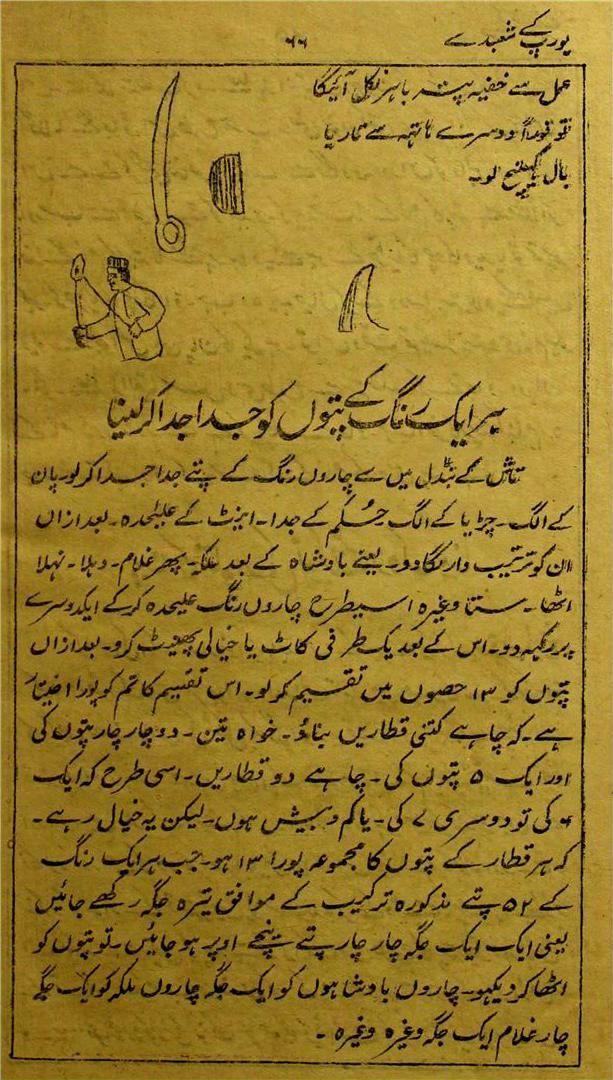 یورپ کے شعبدے
۶۶
عمل سے خفیہ پتہ باہر نکل آئیگا
تو فوراً دوسرے ہاتھ سے تمار یا
بال کھینچ لو۔
ہر ایک رنگ کے پتوں کو جدا جدا کر لینا
تاش کے بنڈل میں سے چاروں رنگ کے پتے جدا جدا کر لو۔ پان
کے الگ۔ چڑیا کے الگ حُکم کے جدا۔ اینٹ کے علیٰحدہ۔ بعد ازاں
ان کو ترتیب وار لگا دو۔ یعنے بادشاہ کے بعد ملکہ۔ پھر غلام۔ دہلا۔ نہلا
اٹھا۔ ستا وغیرہ اسیطرح چاروں رنگ علیحدہ کر کے ایکدوسرے
پر رکہہ دو۔ اس کے بعد یکطرفی کاٹ یا خیالی پھینٹ کرو۔ بعد ازاں
پتوں کو ۱۳ حصوں میں تقسیم کر لو۔ اس تقسیم کا تم کو پورا اختیار
ہے۔ کہ چاہے کتنی قطاریں بناؤ۔ خواہ تین۔ دو چار چار پتوں کی
اور ایک ۵ پتوں کی۔ چاہے دو قطاریں۔ اسی طرح کہ ایک
۶ کی تو دوسری ۷ کی۔ یا کم و بیش ہوں۔ لیکن یہ خیال رہے۔
کہ ہر قطار کے پتوں کا مجموعہ پورا ۱۳ ہو۔ جب ہر ایک رنگ
کے ۵۲ پتے مذکورہ ترکیب کے موافق تیرہ جگہ رکھے جائیں
یعنی ایک ایک جگہ چار چار پتے نیچے اوپر ہو جائیں۔ تو پتوں کو
اٹھا کر دیکہو۔ چاروں بادشاہوں کو ایک جگہ چاروں ملکہ کو ایک جگہ
چار غلام ایک جگہ وغیرہ وغیرہ ۔